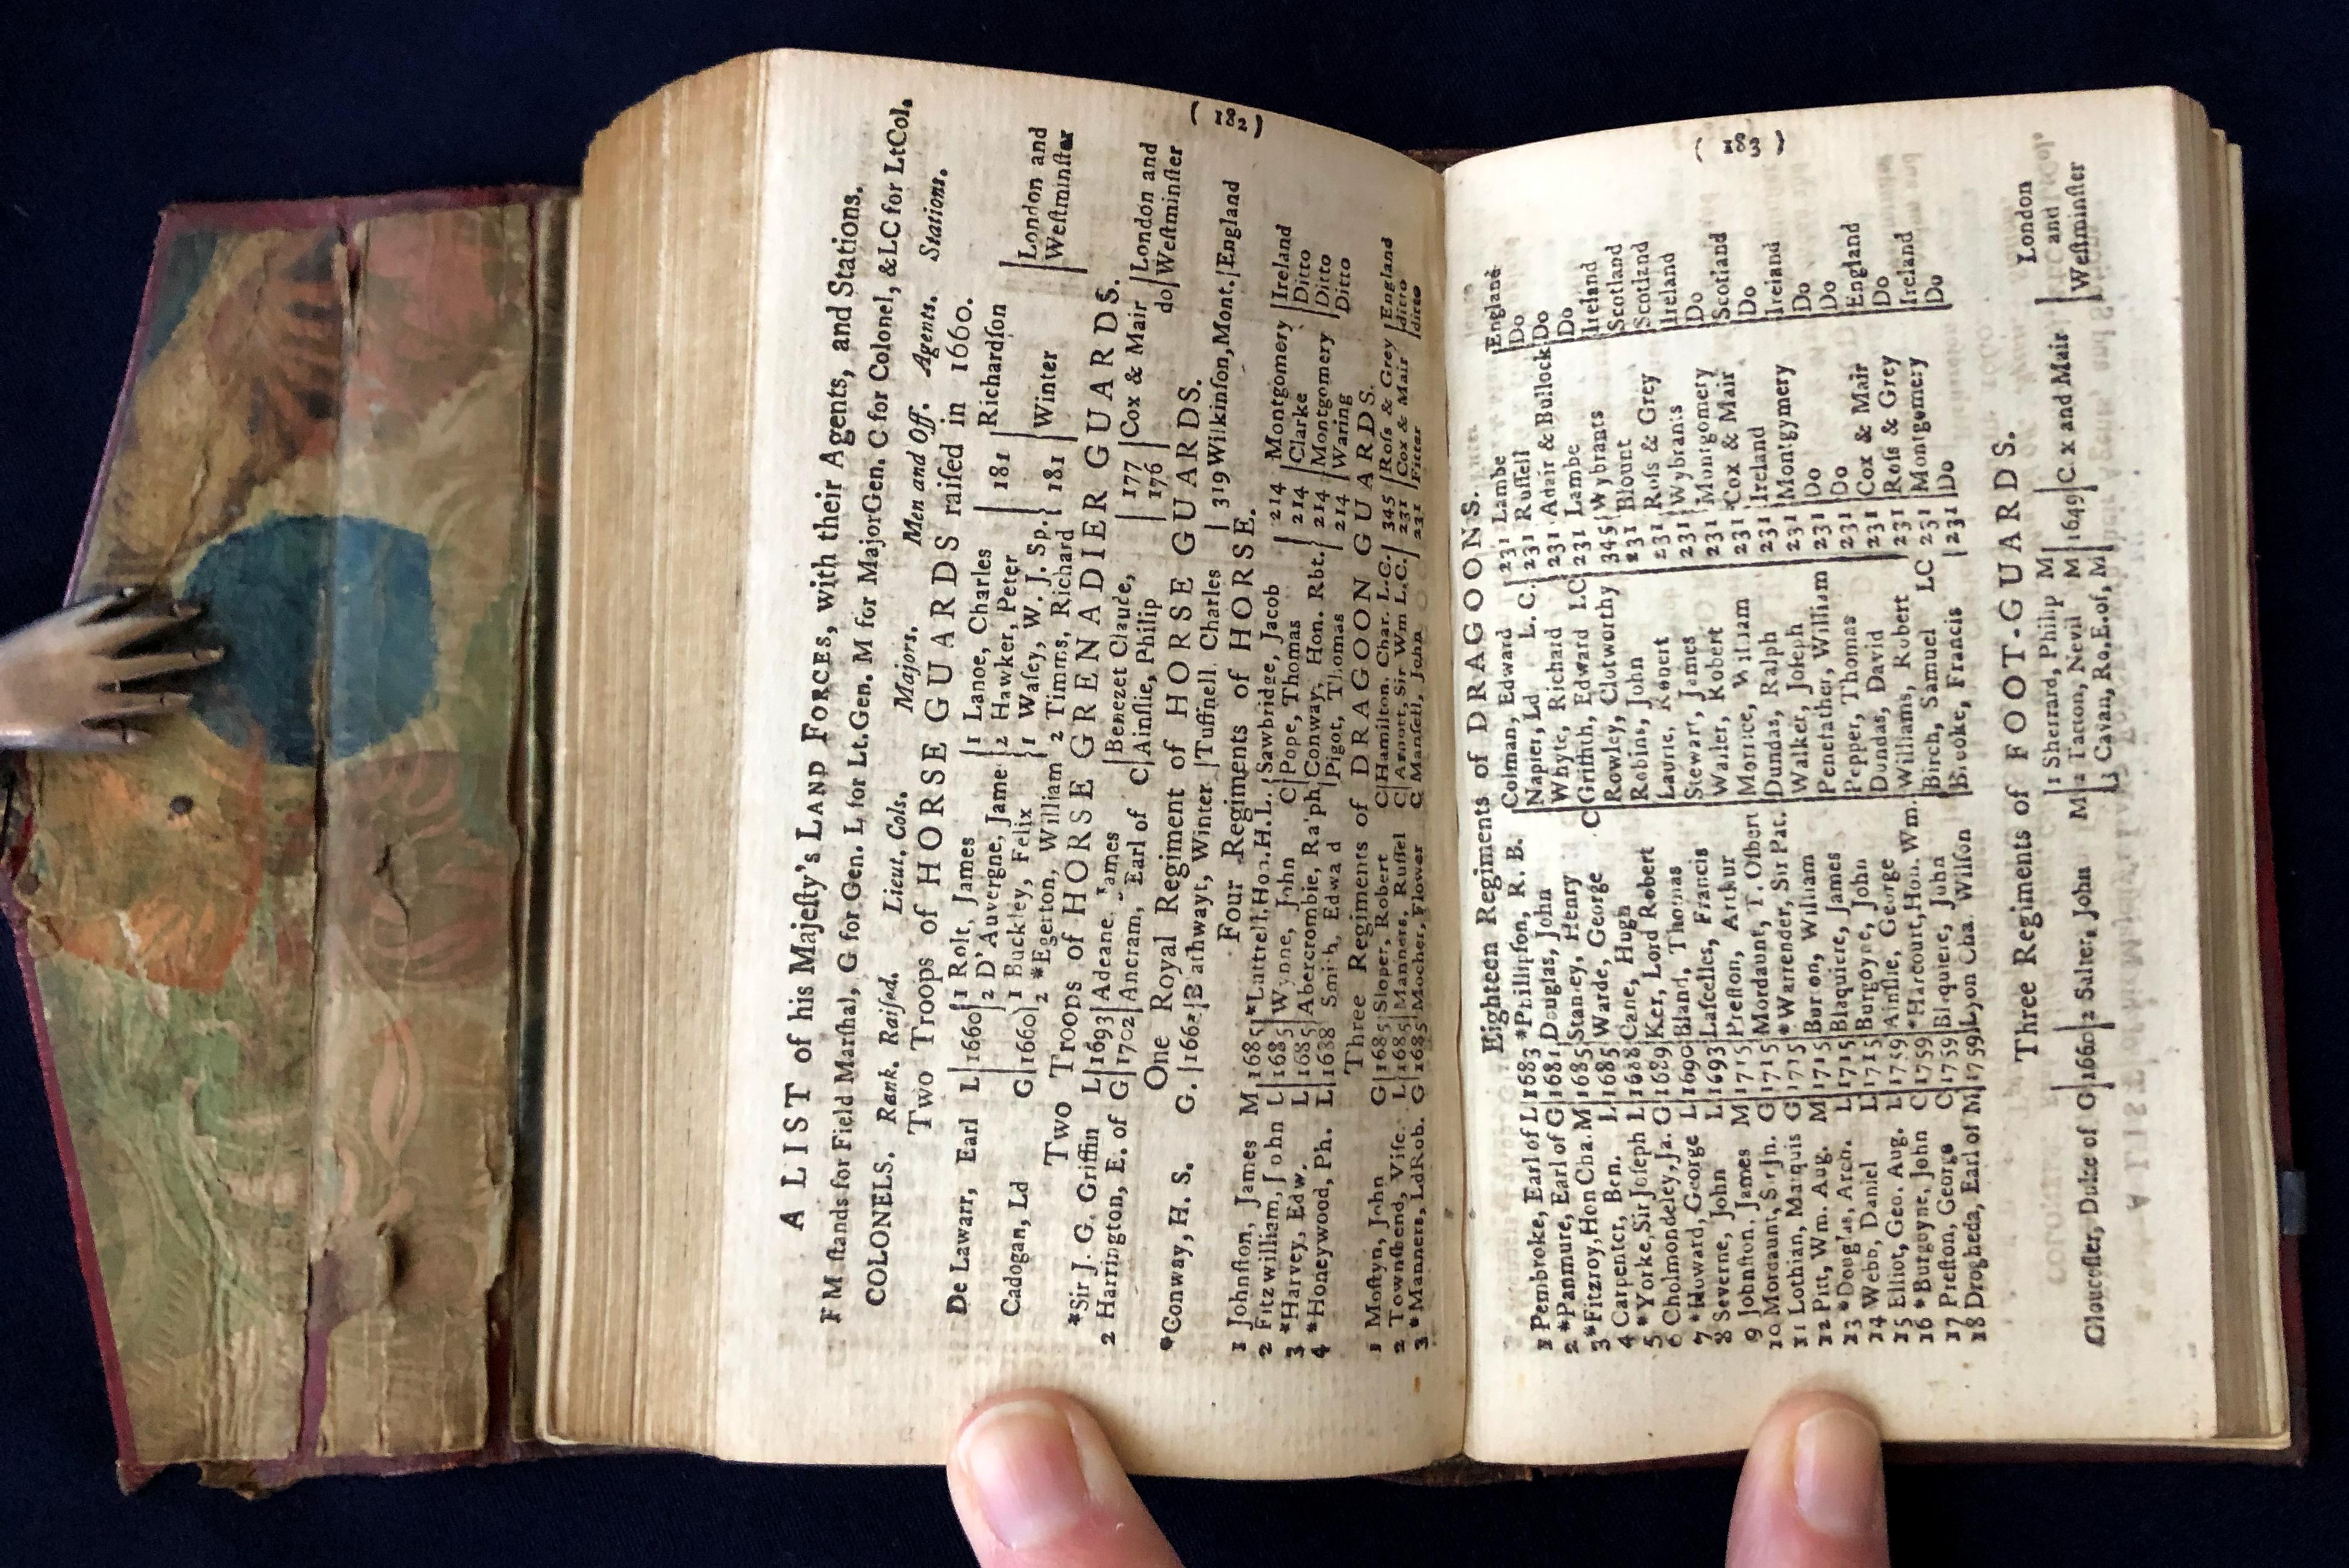 ( 182 )
A LIST of his Majeſty's LAND FORCES, with their Agents, and Stations.
FM ſtands for Field Marſhal, G for Gen. L for Lt.Gen. M for MajorGen. C for Colonel, & LC for LtCol.
COLONELS. Rank. Raiſed. Lieut. Cols. Majors. Men and Off. Agents. Stations.
Two Troops of HORSE GUARDS raiſed in 1660.
De Lawarr, Earl L 1660 1 Rolt, James 1 Lanoe, Charles 181 Richardſon London and
2 D'Auvergne, Jame 2 Hawker, Peter Weſtminſter
Cadogan, Ld G 1660 1 Buckley, Felix 1 Waſey, W. J. Sp. 181 Winter
2 *Egerton, William 2 Timms, Richard
Two Troops of HORSE GRENADIER GUARDS.
*Sir J. G. Griffin L 1693 Adeane, James Benezet Claude, 177 Cox & Mair London and
2 Harrington, E. of G 1702 Ancram, Earl of C Ainſlie, Philip 176 do Weſtminſter
One Royal Regiment of HORSE GUARDS.
*Conway, H. S. G. 1662 Bathwayt, Winter Tuffnell Charles 319 Wilkinſon, Mont. England
Four Regiments of HORSE.
1 Johnſton, James M 1685 *Luttrell, Hon. H. L. Sawbridge, Jacob 214 Montgomery Ireland
2 Fitzwilliam, John L 1685 Wynne, John C Pope, Thomas 214 Clarke Ditto
3 *Harvey, Edw. L 1685 Abercrombie, Ra'ph Conway, Hon. Rbt. 214 Montgomery Ditto
4 *Honeywood, Ph. L 1638 Smith, Edwa d Pigot, Thomas 214 Waring Ditto
Three Regiments of DRAGOON GUARDS.
1 Moſtyn, John G 1685 Sloper, Robert C Hamilton, Char. L.C. 345 Roſs & Grey England
2 Townſhend, Viſc. L 1685 Manners, Ruſſel C Arnott, Sir Wm L.C. 231 Cox & Mair ditto
3 *Manners, LdRob. G 1685 Mocher, Flower C Manſell, John 231 Fitter ditto
( 183 )
Eighteen Regiments of DRAGOONS.
1 Pembroke, Earl of L 1683 *Phillipſon, R. B. Colman, Edward 231 Lambe England
2 *Panmure, Earl of G 1681 Douglas, John Napier, Ld. L. C. 231 Ruſſell Do
3 *Fitzroy, Hon Cha. M 1685 Stanley, Henry Whyte, Richard 231 Adair & Bullock Do
4 Carpenter, Ben. L 1685 Warde, George C Griffith, Edward LC 231 Lambe Do
5 *Yorke, Sir Joſeph L 1688 Cane, Hugh Rowley, Clotworthy 345 Wybrants Ireland
6 Cholmondeley, Ja. G 1689 Ker, Lord Robert Robins, John 231 Blount Scotland
7 *Howard, George L 1690 Bland, Thomas Laurie, Robert 231 Roſs & Grey Scotland
8 Severne, John L 1693 Laſcelles, Francis Stewart, James 231 Wybrants Ireland
9 Johnſton, James M 1715 Preſton, Arthur Waller, Robert 231 Montgomery Do
10 Mordaunt, Sr Jn. G 1715 Mordaunt, T. Oſbert Morrice, William 231 Cox & Mair Scotland
11 Lothian, Marquis G 1715 *Warrender, Sir Pat. Dundas, Ralph 231 Ireland Do
12 Pitt, Wm. Aug. M 1715 Burton, William Walker, Joſeph 231 Montgymery Ireland
13 *Douglas, Arch. L 1715 Blaquiere, James Penefather, William 231 Do Do
14 Webb, Daniel L 1715 Burgoyne, John Pepper, Thomas 231 Do Do
15 Elliot, Geo. Aug. L 1759 Ainſlie, George Dundas, David 231 Cox & Mair England
16 *Burgoyne, John C 1759 *Harcourt, Hon. Wm. Williams, Robert 231 Roſs & Grey Do
17 Preſton, George C 1759 Bl quiere, John Birch, Samuel LC 231 Montgomery Ireland
18 Drogheda, Earl of M 1759 Lyon Cha. Wilſon Brooke, Francis 231 Do Do
Three Regiments of FOOT-GUARDS.
1 Sherrard, Philip M London
Glouceſter, Duke of G 1660 2 Salter, John M 2 Tatton, Nevil M 1649 C x and Mair and
Cavan, Ro. E. of, M Weſtminſter